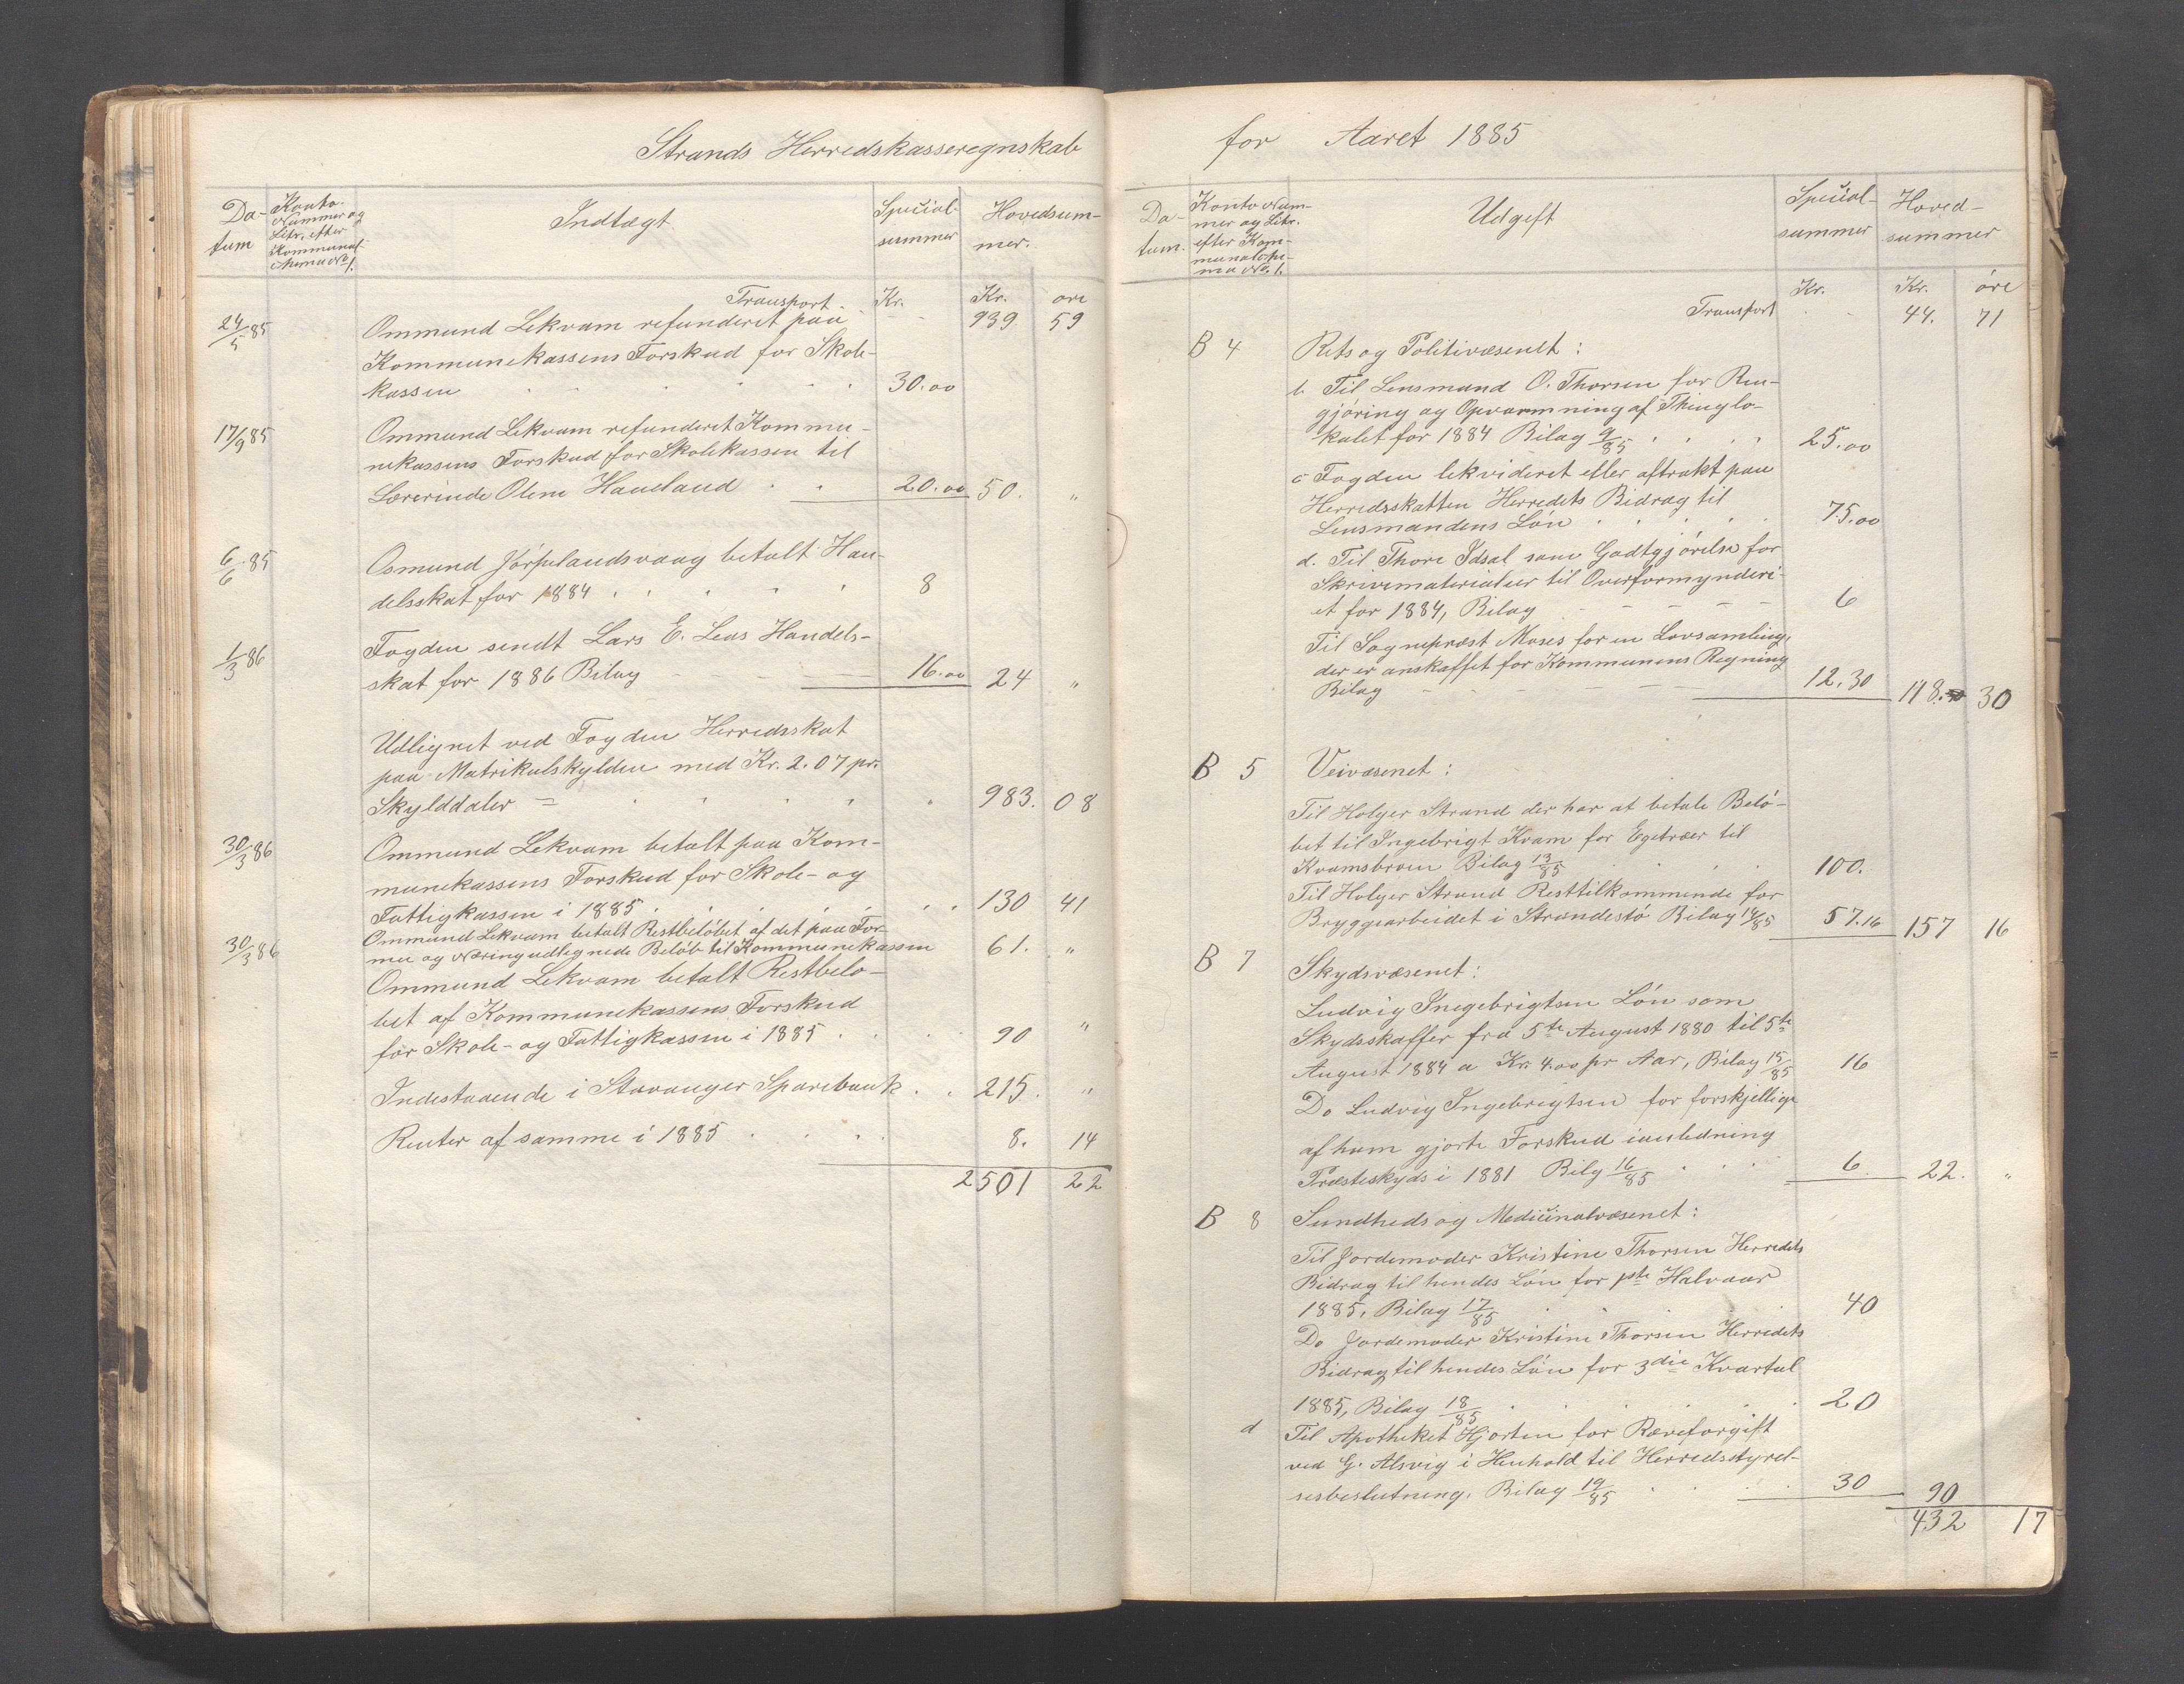 Strands Herredskasseregnskab
Da-
tum
Konto-
Nummer og
Litr. efter
Kommunal-
schema No 1.
Indtægt
Special-
summer
Hovedsum-
mer.
Transport Kr. Kr. øre
24/5 85 Ommund Lekvam refunderet paa 939 59
Kommunekassens Forskud for Skole-
kassen 30.00
17/9 85 Ommund Lekvam refunderet Kommu-
nekassens Forskud for Skolekassen til
Lærerinde Olene Haueland 20.00 50. "
6/6 85 Osmund Jörpelandsvaag betalt Han-
delsskat for 1884 8
1/3 86 Fogden sendt Lars E. Leas Handels-
skat for 1886 Bilag 16.00 24 "
Udlignet ved Fogden Herredsskat
paa Matrikulskylden med Kr. 2.07 pr.
Skylddaler = 983. 08
30/3 86 Ommund Lekvam betalt paa Kom-
munekassens Forskud for Skole- og
Fattigkassen i 1885 130 41
Ommund Lekvam betalt Restbeløbet af det paa For-
30/3 86 mue og Næring udlignede Beløb til Kommunekassen 61. "
Ommund Lekvam betalt Restbelø-
bet af Kommunekassens Forskud
for Skole- og Fattigkassen i 1885 90 "
Indestaaende i Stavanger Sparebank 215. "
Renter af samme i 1885 8. 14
2501 22
for Aaret 1885
Da-
tum.
Konto Num-
mer og Litr.
efter Kom-
munalsche-
ma No. 1.
Udgift
Special-
summer
Hoved-
summer
Kr. Kr. øre
Transport 44. 71
B 4 Rets og Politivæsenet:
b Til Lensmand O. Thorsen for Ren-
gjøring og Opvarmning af Thinglo-
kalet for 1884 Bilag 9/85 25.00
c Fogden lekvideret eller aftrukt paa
Herredsskatten Herredets Bidrag til
Lensmandens Løn 75.00
d. Til Thore Idsal som Godtgjørelse for
Skrivematerialier til Overformynderi-
et for 1884, Bilag 6
Til Sognepræst Moses for en Lovsamling,
der er anskaffet for Kommunens Regning
Bilag 12.30 118. 30
B 5 Veivæsenet:
Til Holger Strand der har at betale Belø-
bet til Ingebrigt Kvam for Egetræer til
Kvamsbroen Bilag 13/85 100.
Til Holger Strand Resttilkommende for
Bryggearbeidet i Strandestø Bilag 14/85 57.16 157 16
B 7 Skydsvæsenet:
Ludvig Inegebrigtsen Løn som
Skydsskaffer fra 5te August 1880 til 5te
August 1884 a Kr. 4.00 pr Aar, Bilag 15/85 16
Do Ludvig Ingebrigtsen for forskjellige
af ham gjorte Forskud ianledning
Præsteskyds i 1881 Bilg 16/85 6. 22. "
B 8 Sundheds og Medicinalvæsenet:
Til Jordemoder Kristine Thorsen Herredets
Bidrag til hendes Løn for 1ste Halvaar
1885, Bilag 17/85 40
Do Jordemoder Kristine Thorsen Herredets
Bidrag til hendes Løn for 3die Kvartal
1885, Bilag 18/85 20
d Til Apotheket Hjorten for Ræveforgift
ved G. Alsvig i Henhold til Herredsstyrel-
sesbeslutning. Bilag 19/85 30 90
432 17